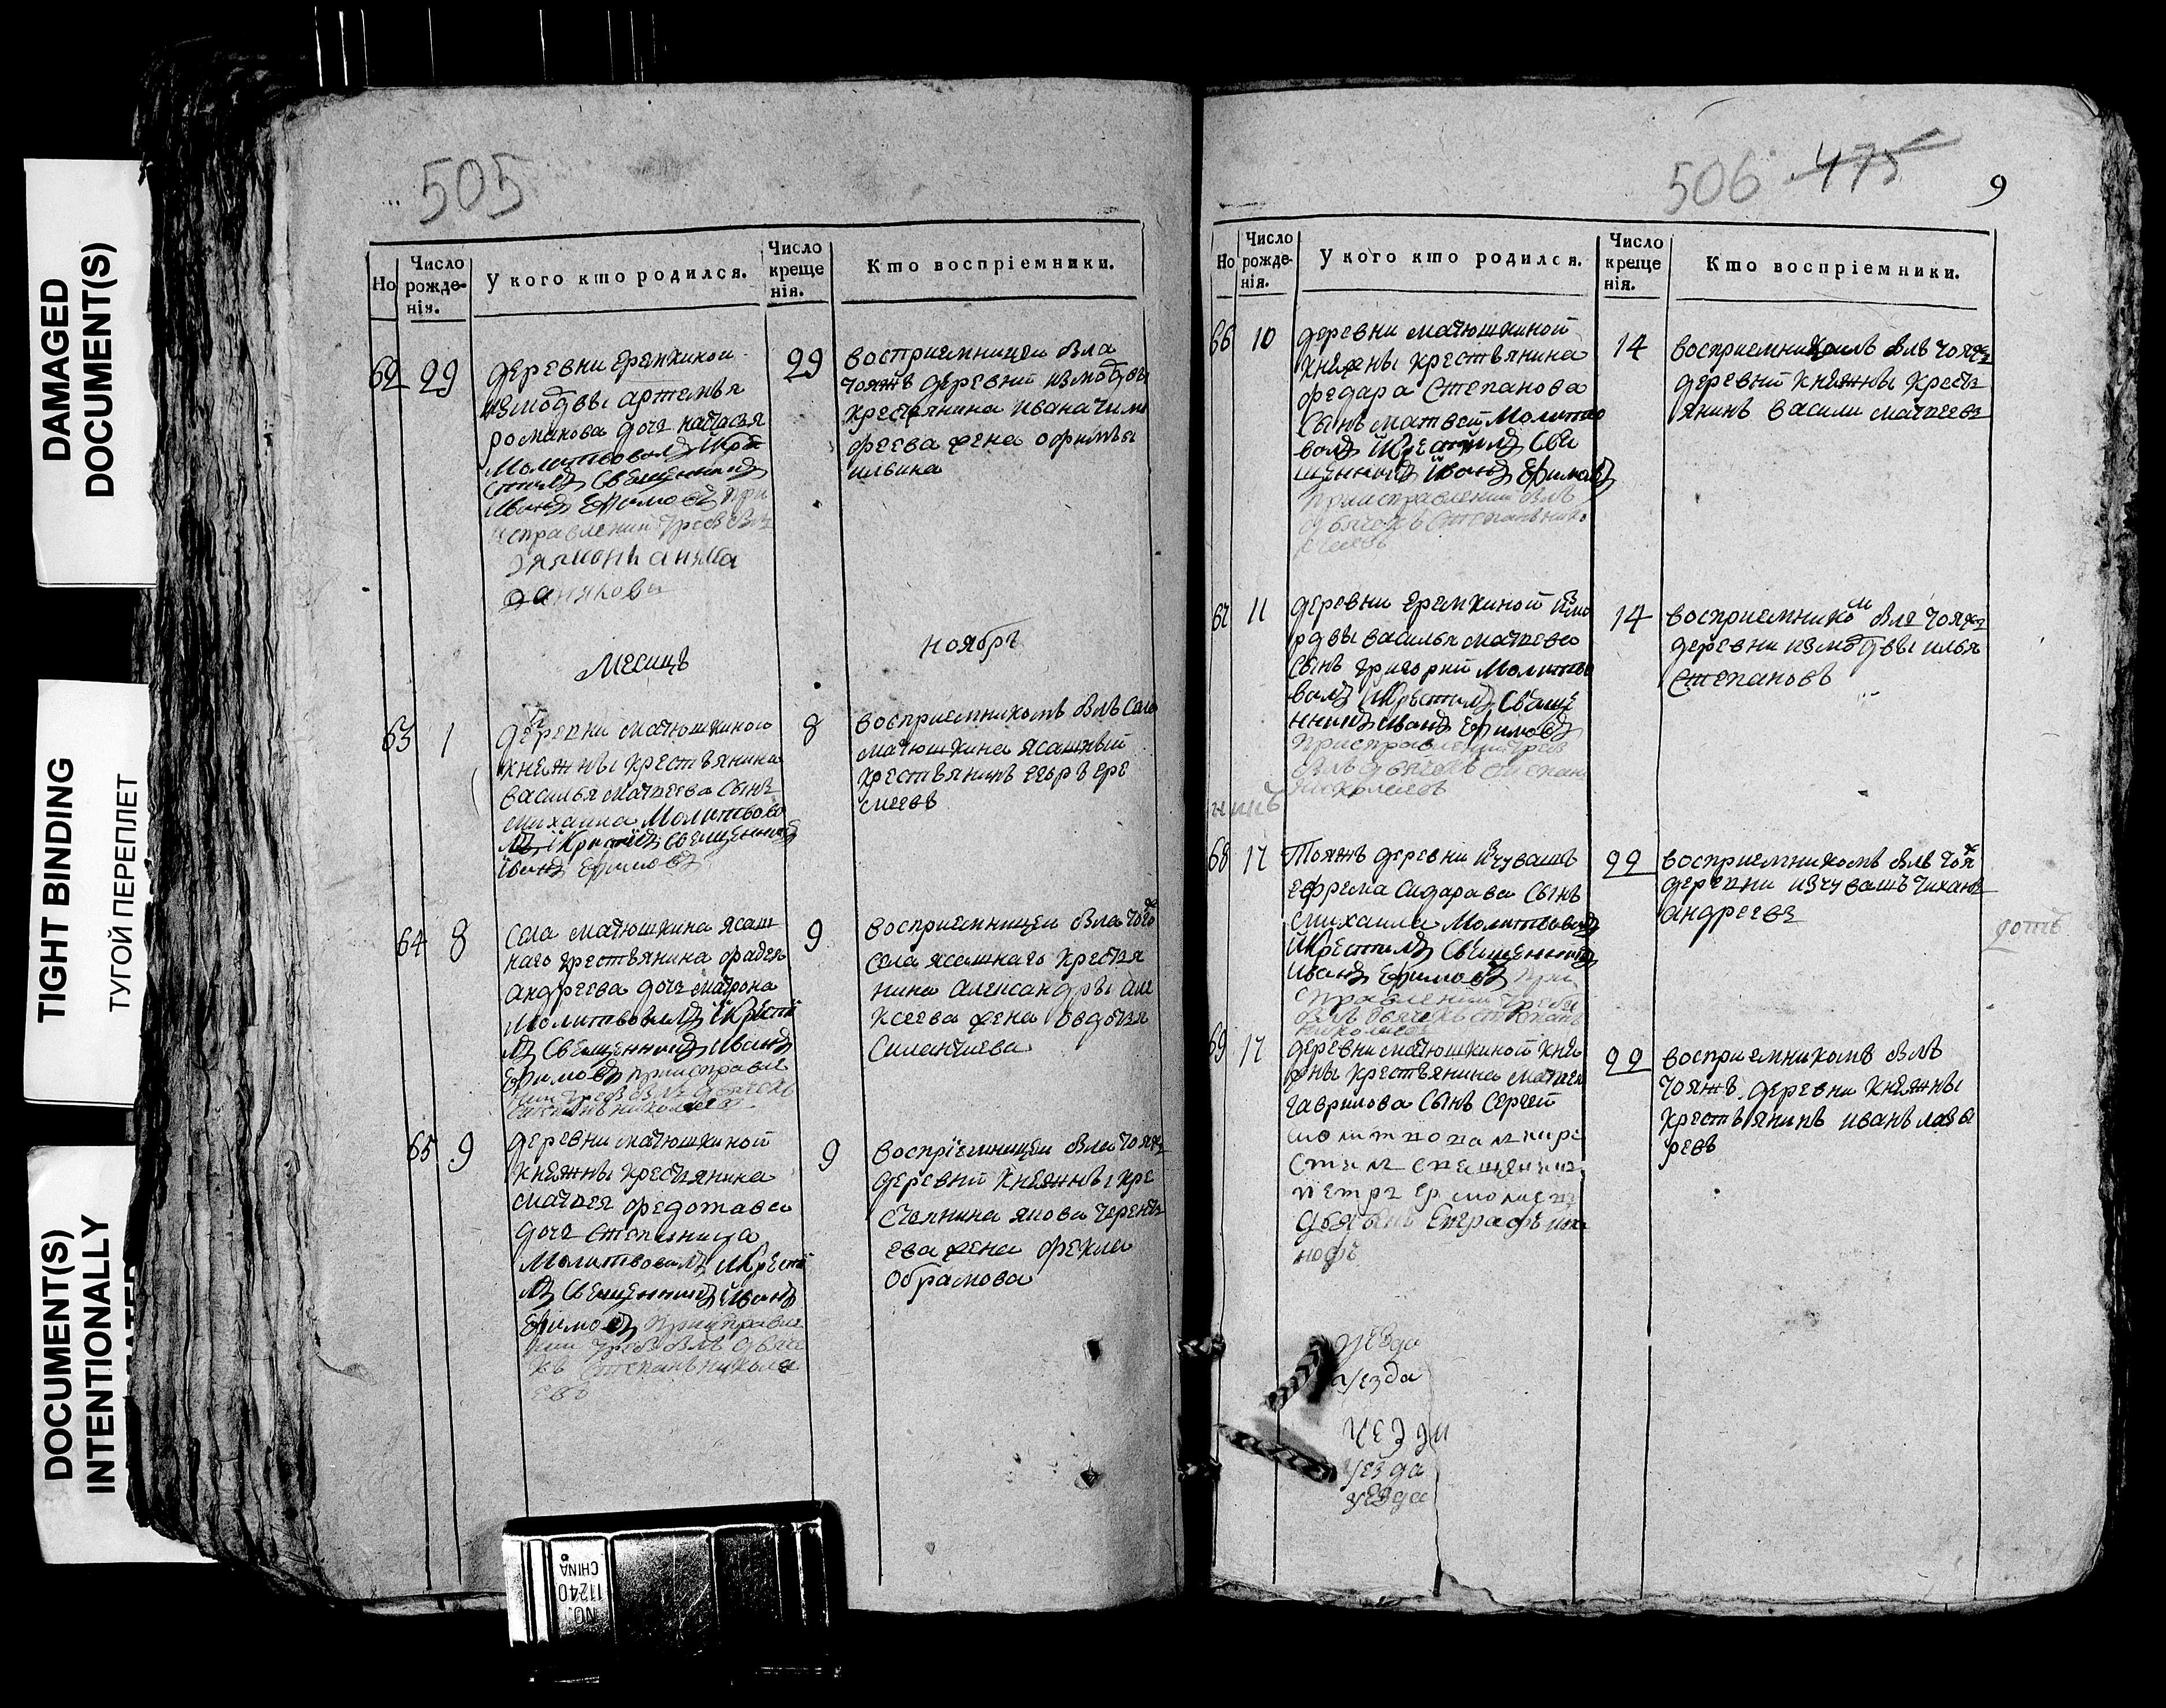 DAMAGED
DOCUMENT(S)
TIGHT BINDING
ТУГОЙ ПЕРЕПЛЕТ
DOCUMENT(S)
INTENTIONALLY
505
Но
Число рожде-нія.
У кого кто родился.
Число креще нія.
Кто воспріемники.
62 29
деревни еремкиной
измордвы артемья
романова дочь настася
Молитвовалъ Икре
стилъ Священникъ
Иванъ Ефимовъ при
исправлении
29
восприемницеи была
тояжъ деревни измордвы
крестьянина ивана тимо
феева жена офимья
ильина
Месицъ
ноябрь
63 1
деревни матюшкиною
княжны крестьянина
василья матвеева сынъ
михаила Молитвова
лъ Икрестилъ Священникъ
Іванъ Ефимовъ
8
восприемникомъ былъ села
матюшкина ясашный
крестьянинъ егоръ ере
меевъ
64 8
села матюшкина ясаш
наго крестьянина фадея
андреева дочь матрона
Молитвовалъ Икрести
лъ Священникъ Иванъ
Ефимовъ приисправле
нии требъ былъ дьячекъ
степанъ николаевъ
9
восприемницеи была тогожъ
села ясашнаго крестья
нина александры але
ксеева жена овдотья
силантиева
65 9
деревни матюшкиной
княжны крестьянина
матвея федотава
дочь степанида
Молитвовалъ Икрести
лъ Священникъ Иванъ
Ефимовъ приисправле
нии требъ былъ дьяче
къ Степанъ никола
евъ
9
восприемницеи была тояжъ
деревни княжны кре
стьянина якова теренть
ева жена фекла
обрамова
506 475
9
Но
Число рожде-нія.
У кого кто родился.
Число креще нія.
Кто воспріемники.
66 10
деревни матюшкиной
княжны крестьянина
федара Степанова
Сынъ матвей Молитво
валъ Икрестилъ Свя
щенникъ Іванъ Ефимовъ
приисправлении былъ
дьячекъ Степанъ нико
лаевъ
14
восприемникомъ былъ тояжъ
деревни княжны кресть
янинъ васили матвеевъ
67 11
деревни еремкиной измо
рдвы василья матвева
сынъ григорий Молитво
валъ Икрестилъ Свяще
нникъ Иванъ Ефимовъ
приисправлении требъ
былъ дьячекъ степанъ
николаевъ
14
восприемником былъ тояжъ
деревни измордвы илья
Степановъ
68 17
Тояжъ деревни изчувашъ
ефрема сидарава сынъ
михаила Молитвовалъ
Икрестилъ Священникъ
Иванъ Ефимовъ при
справлении требы
былъ дьячекъ степанъ
николаевъ
22
восприемникомъ былъ тояж
деревни изчувашъ тиханъ
андреевъ
69 17
деревни матюшкиной кня
жны крестьянина матвея
гаврилова сынъ сергей
молитвовалъ икре
стилъ священникъ
петръ ермолаевъ
22
восприемникомъ былъ
тояжъ деревни княжны
крестьянинъ иванъ лавы
ревъ
уезда
уезда
уезда
уезда
NO.
11240
CHINA